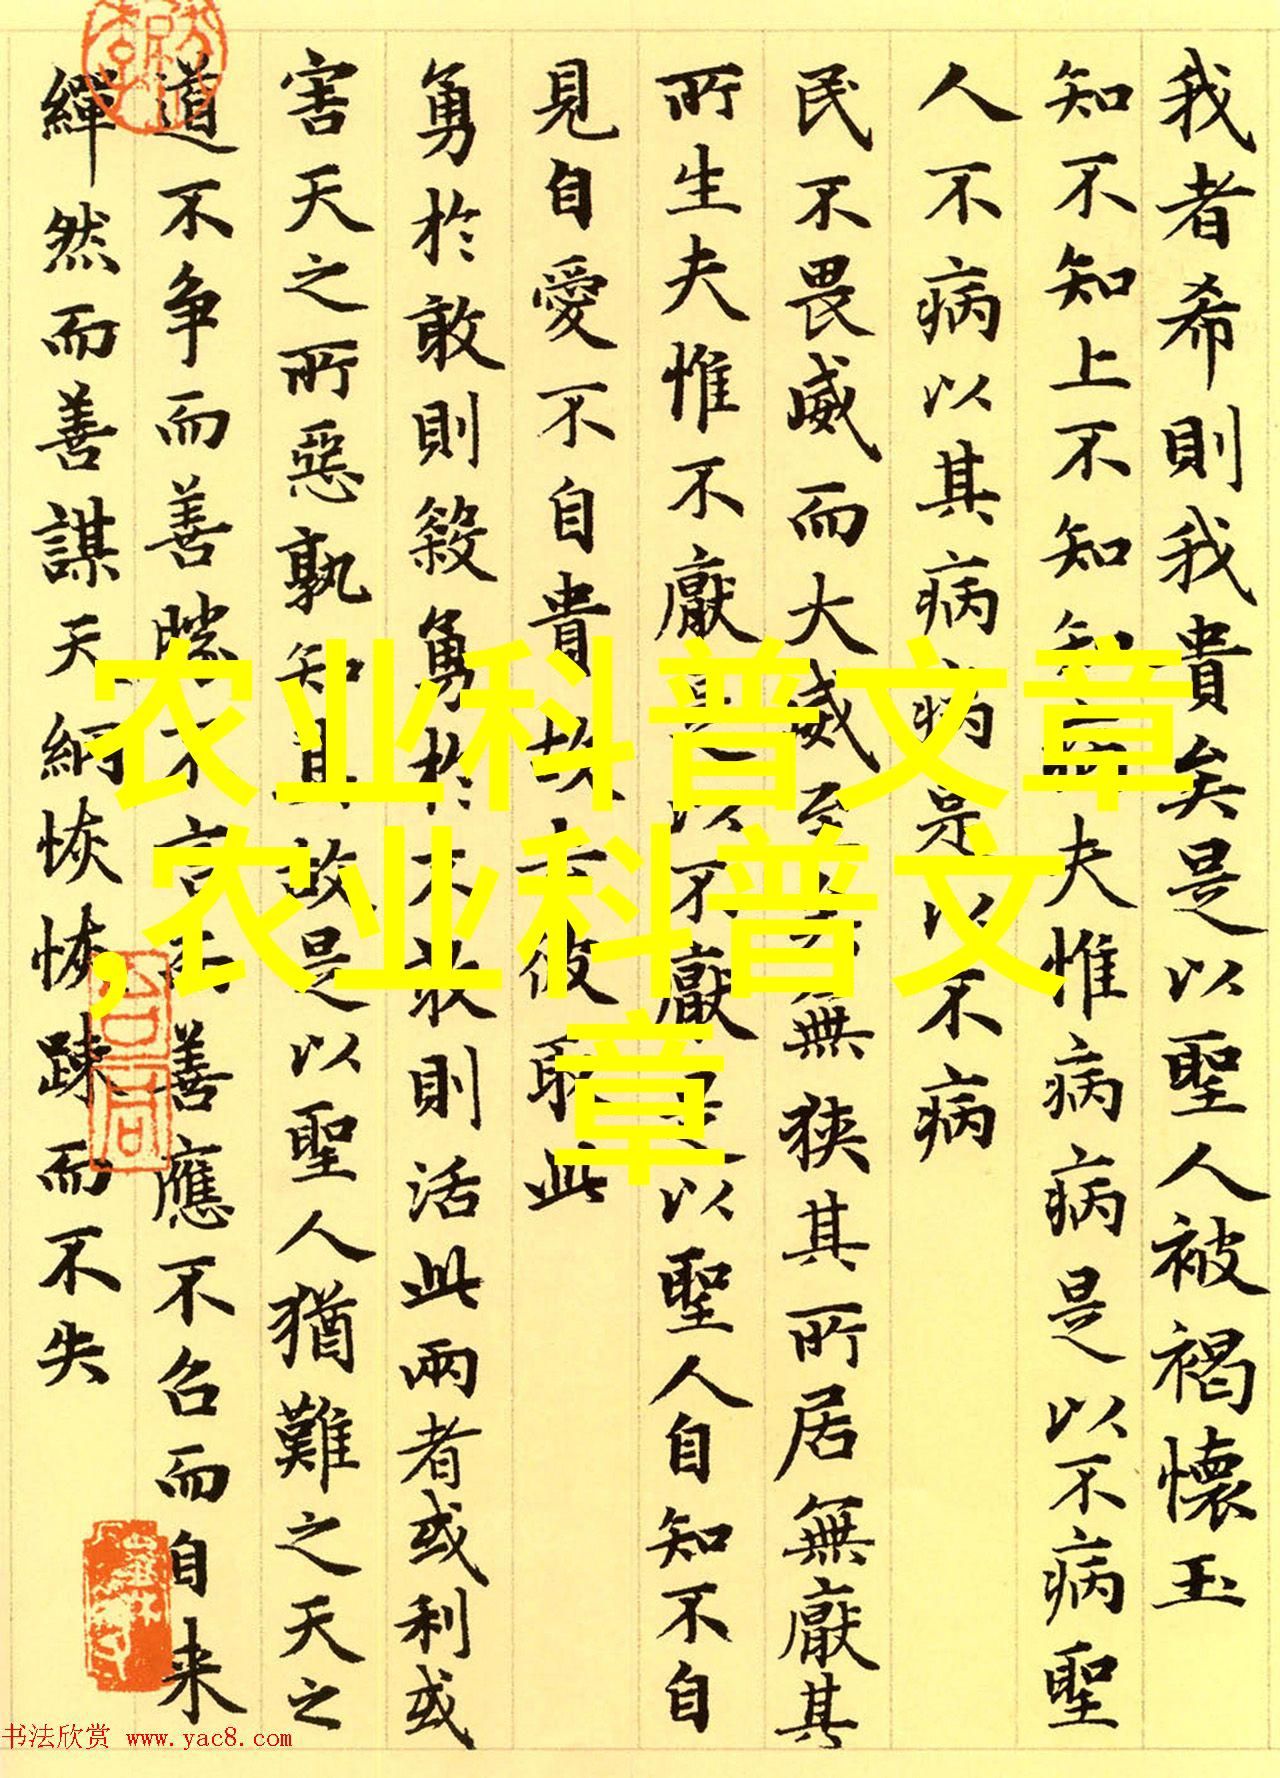 我者希則我貴矣是以聖人被褐懷玉
知不知上不知知病夫惟病病是以不病聖
人不病以其病病是以不病
民不畏威而大威至無狹其所居無厭其
所生夫惟不厭是以不厭是以聖人自知不自
見自愛不自貴故去彼取此
勇於敢則殺勇於不敢則活此兩者或利或
害天之所惡孰知其故是以聖人猶難之天之
道不争而善勝不言而善應不召而自来
繟然而善謀天網恢恢踈而不失
农业科普文章
,农业科普文
章
书法欣赏 www.yac8.com